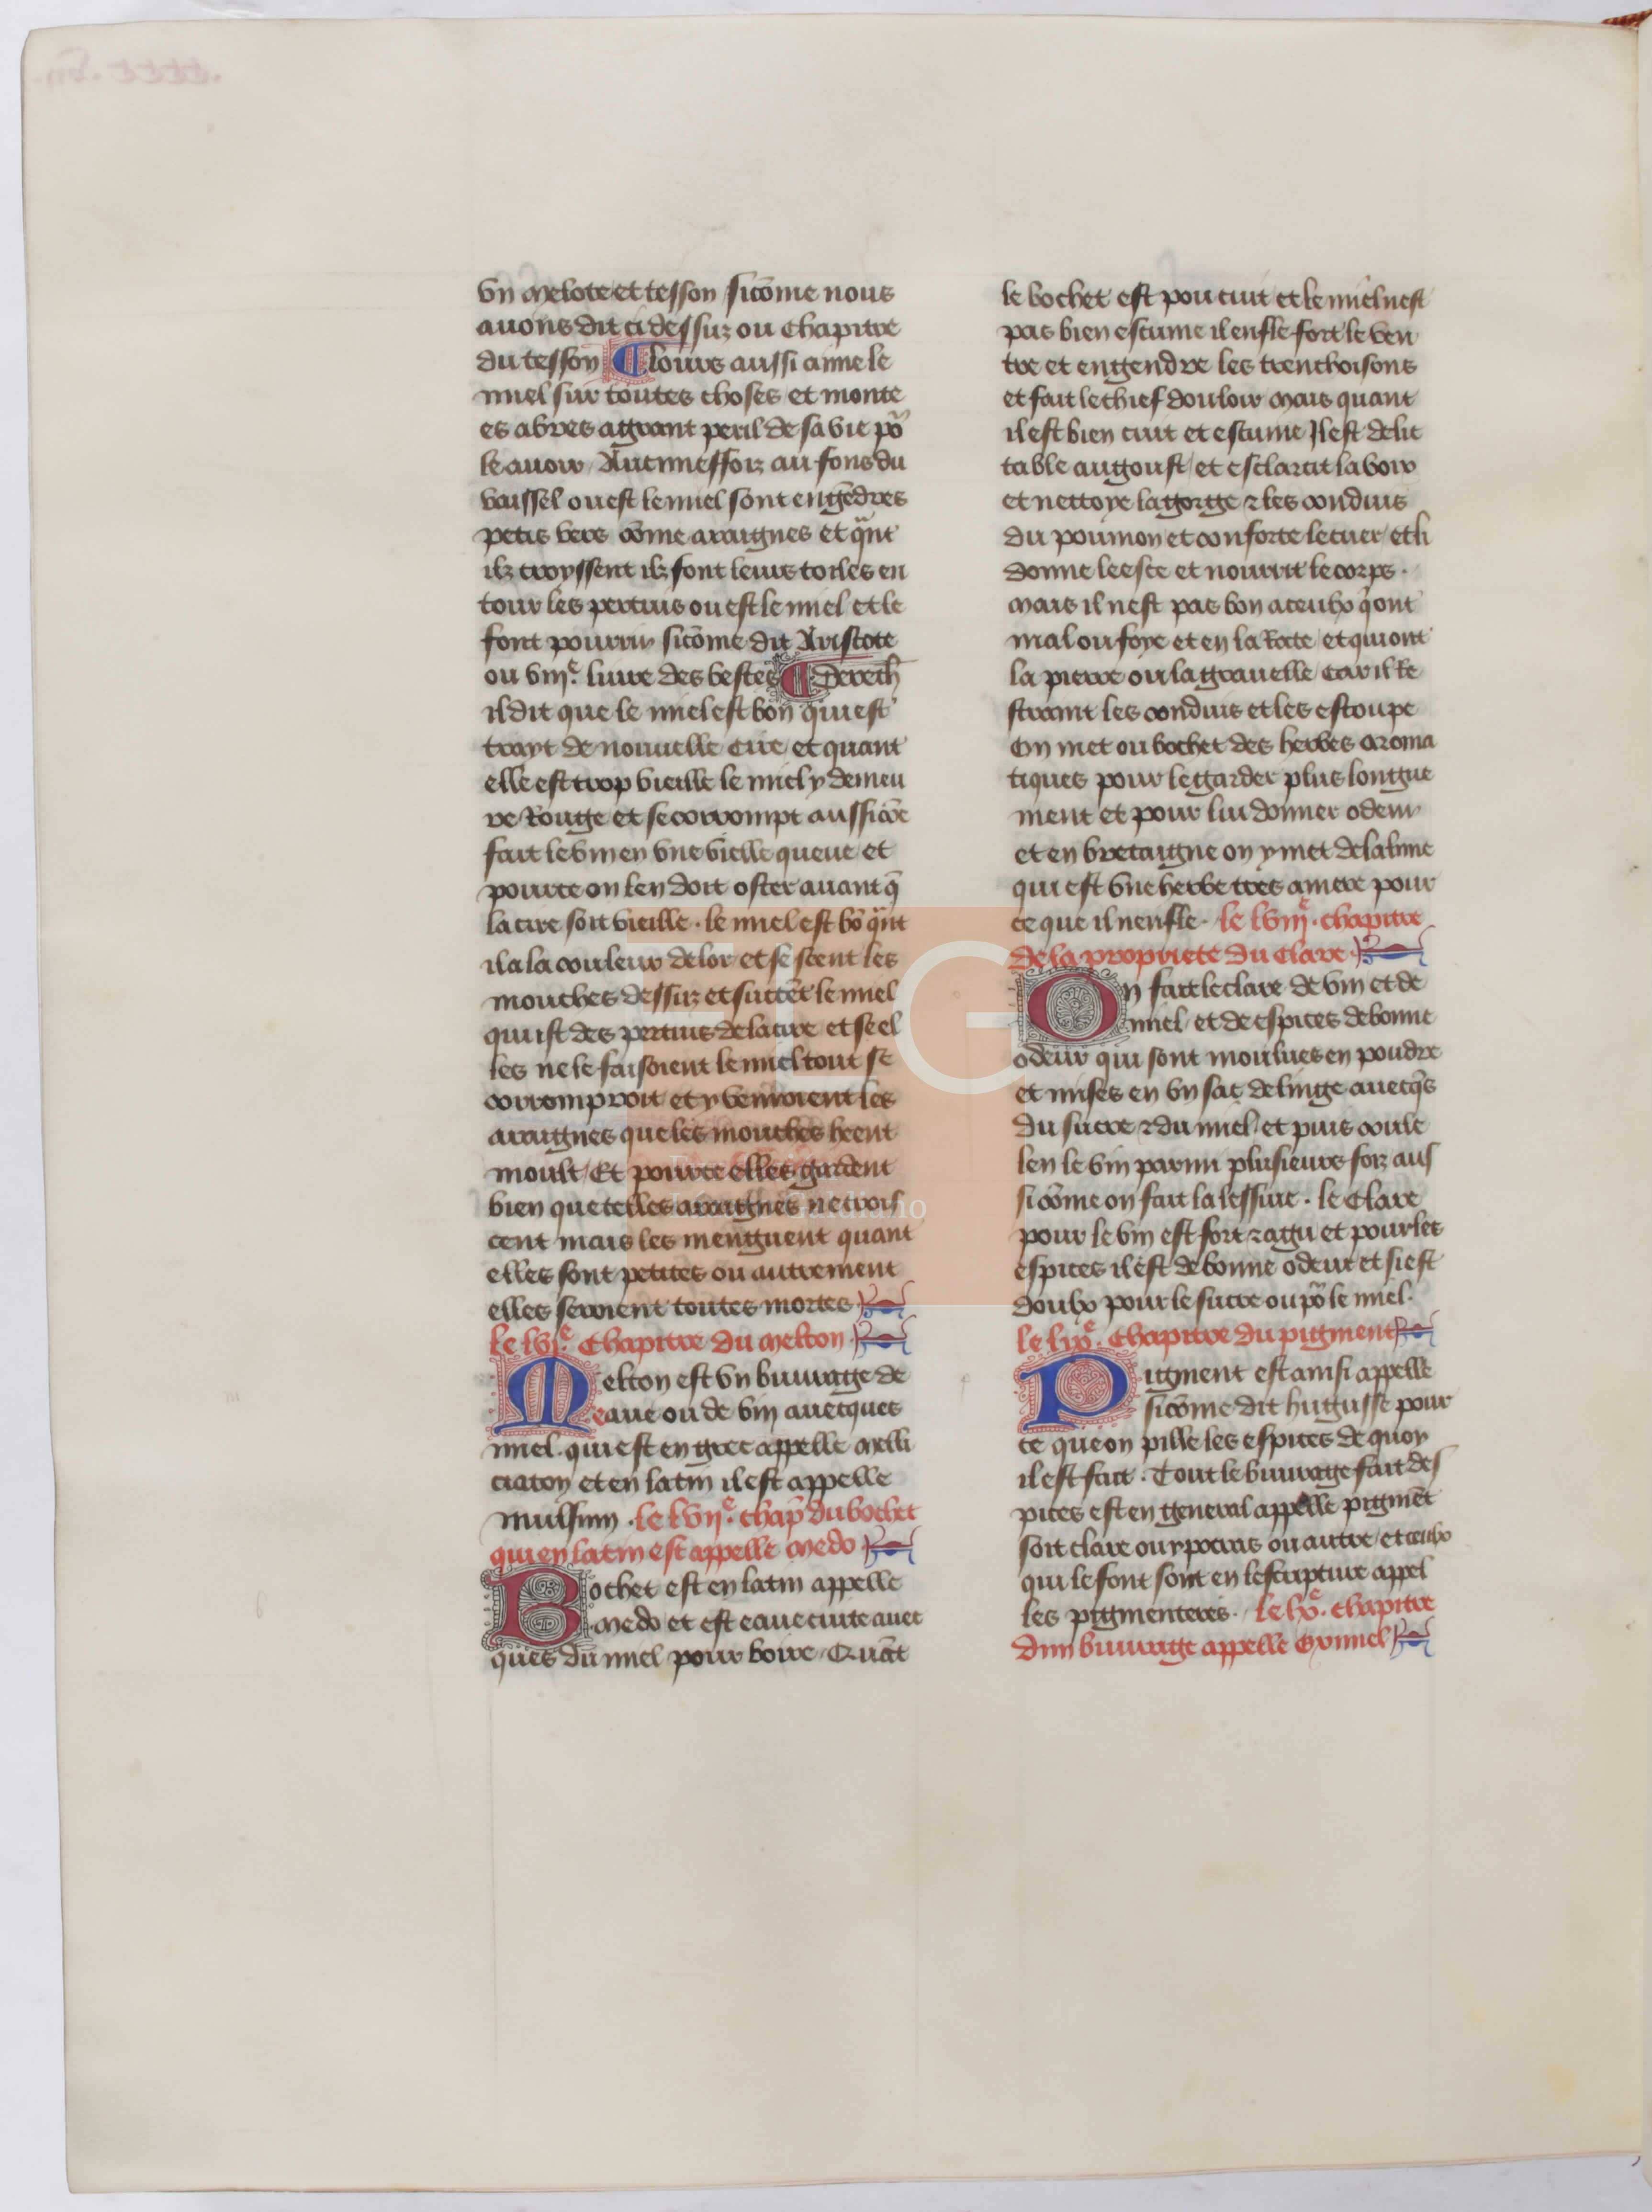 vn melote et tesson sicōme nous
auons dit ci dessuz ou chapitre
du tesson ¶ Lours aussi aime le
miel sur toutes choses et monte
es abres a grant peril de sa vie po
le auoir Aucunesfoiz au fons du
vaissel ou est le miel sont engēdres
petis vers cōme araignes et qnt
ilz croyssent ilz font leurs toiles en
tour les pertuis ou est le miel et le
font pourrir sicōme dit Aristote
ou viijᵉ. liure des bestes ¶ Derech
il dit que le miel est bon qui est
trayt de nouuelle cire et quant
elle est trop vieille le miel y demeu
re Rouge et se corrompt aussi cōe
fait le vin en vne vielle queue et
pource on len doit oster auant q̄
la cire soit vieille . le miel est bō qnt
il a la couleur de lor et se seent les
mouches dessuz et succēt le miel
qui ist des pertuis de la cire et se el
les ne le faisoient le miel tout se
corromproit et y venroient les
araignes que les mouches heent
moult Et pource elles gardent
bien que telles araignes ne crois
cent mais les menguent quant
elles sont petites ou autrement
elles seroient toutes mortes
le lvjᵉ. chapitre du melton
Melton est vn buurage de
eaue ou de vin auecques
miel . qui est en grec appelle melli
craton et en latin il est appelle
mulsum . le lvijᵉ. chap̄ du bochet
qui en latin est appelle medo
Bochet est en latin appelle
medo et est eaue cuite auec
ques du miel pour boire Quāt
le bochet est pou cuit et le miel nest
pas bien escume il enfle fort le ven
tre et engendre les trenchoisons
et fait le chief douloir mais quant
il est bien cuit et escume Il est delit
table au goust et esclarcit la voix
et nettoye la gorge ⁊ les conduis
du poumon et conforte le cuer et li
donne leesce et nourrit le corps .
mais il nest pas bon a ceulx q̄ ont
mal ou foye et en la Ratte et qui ont
la pierre ou la grauelle car il Re
straint les conduis et les estoupe
On met ou bochet des herbes aroma
tiques pour le garder plus longue
ment et pour lui donner odeur
et en bretaigne on y met de laluine
qui est vne herbe tres amere pour
ce que il nenfle . le lviijᵉ. chapitre
de la propriete du clare
On fait le clare de vin et de
miel et de espices de bonne
odeur qui sont moulues en poudre
et mises en vn sac de linge auecq̄s
du sucre ⁊ du miel et puis coule
len le vin parmi plusieurs foiz aus
si cōme on fait la lessiue . le clare
pour le vin est fort ⁊ agu et pour les
espices il est de bonne odeur et si est
doulx pour le sucre ou po le miel .
le lixᵉ. chapitre du pigment
Pigment est ainsi appelle
sicōme dit hugusse pour
ce que on pille les espices de quoy
il est fait . Tout le buurage fait des
pices est en general appelle pigmēt
soit clare ou ypocras ou autre et ceulx
qui le font sont en lescripture appel
les pigmenteres . le lxᵉ. chapitre
dun buurage appelle oximel